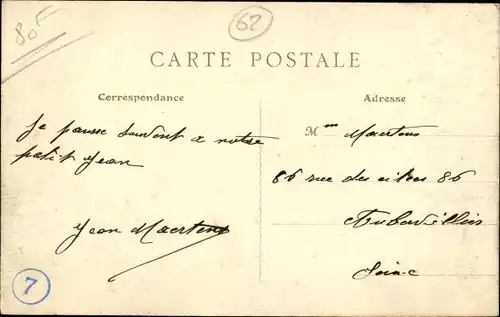 805
62
CARTE POSTALE
Correspondance
Je pansse souvent a notre
petit Jean
Jean Maertens
7
Adresse
Mme Maertens
86 rue des cités 86
Aubervilliers
Seine